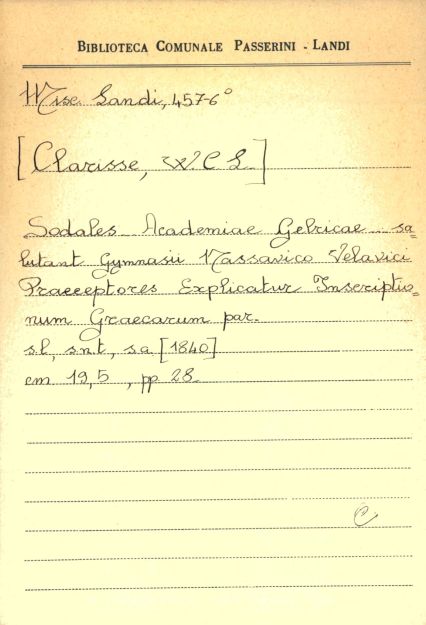 BIBLIOTECA COMUNALE PASSERINI - LANDI
Misc. Landi, 457-6°
[Clarisse, W. C. L.]
Sodales Academiae Gelricae sa=
lutant Gymnasii Nassavico Velavici
Praeceptores Explicatur Inscriptio=
num Graecarum par.
s.l, s.n.t, s.a [1840]
cm 19,5, pp 28.
C